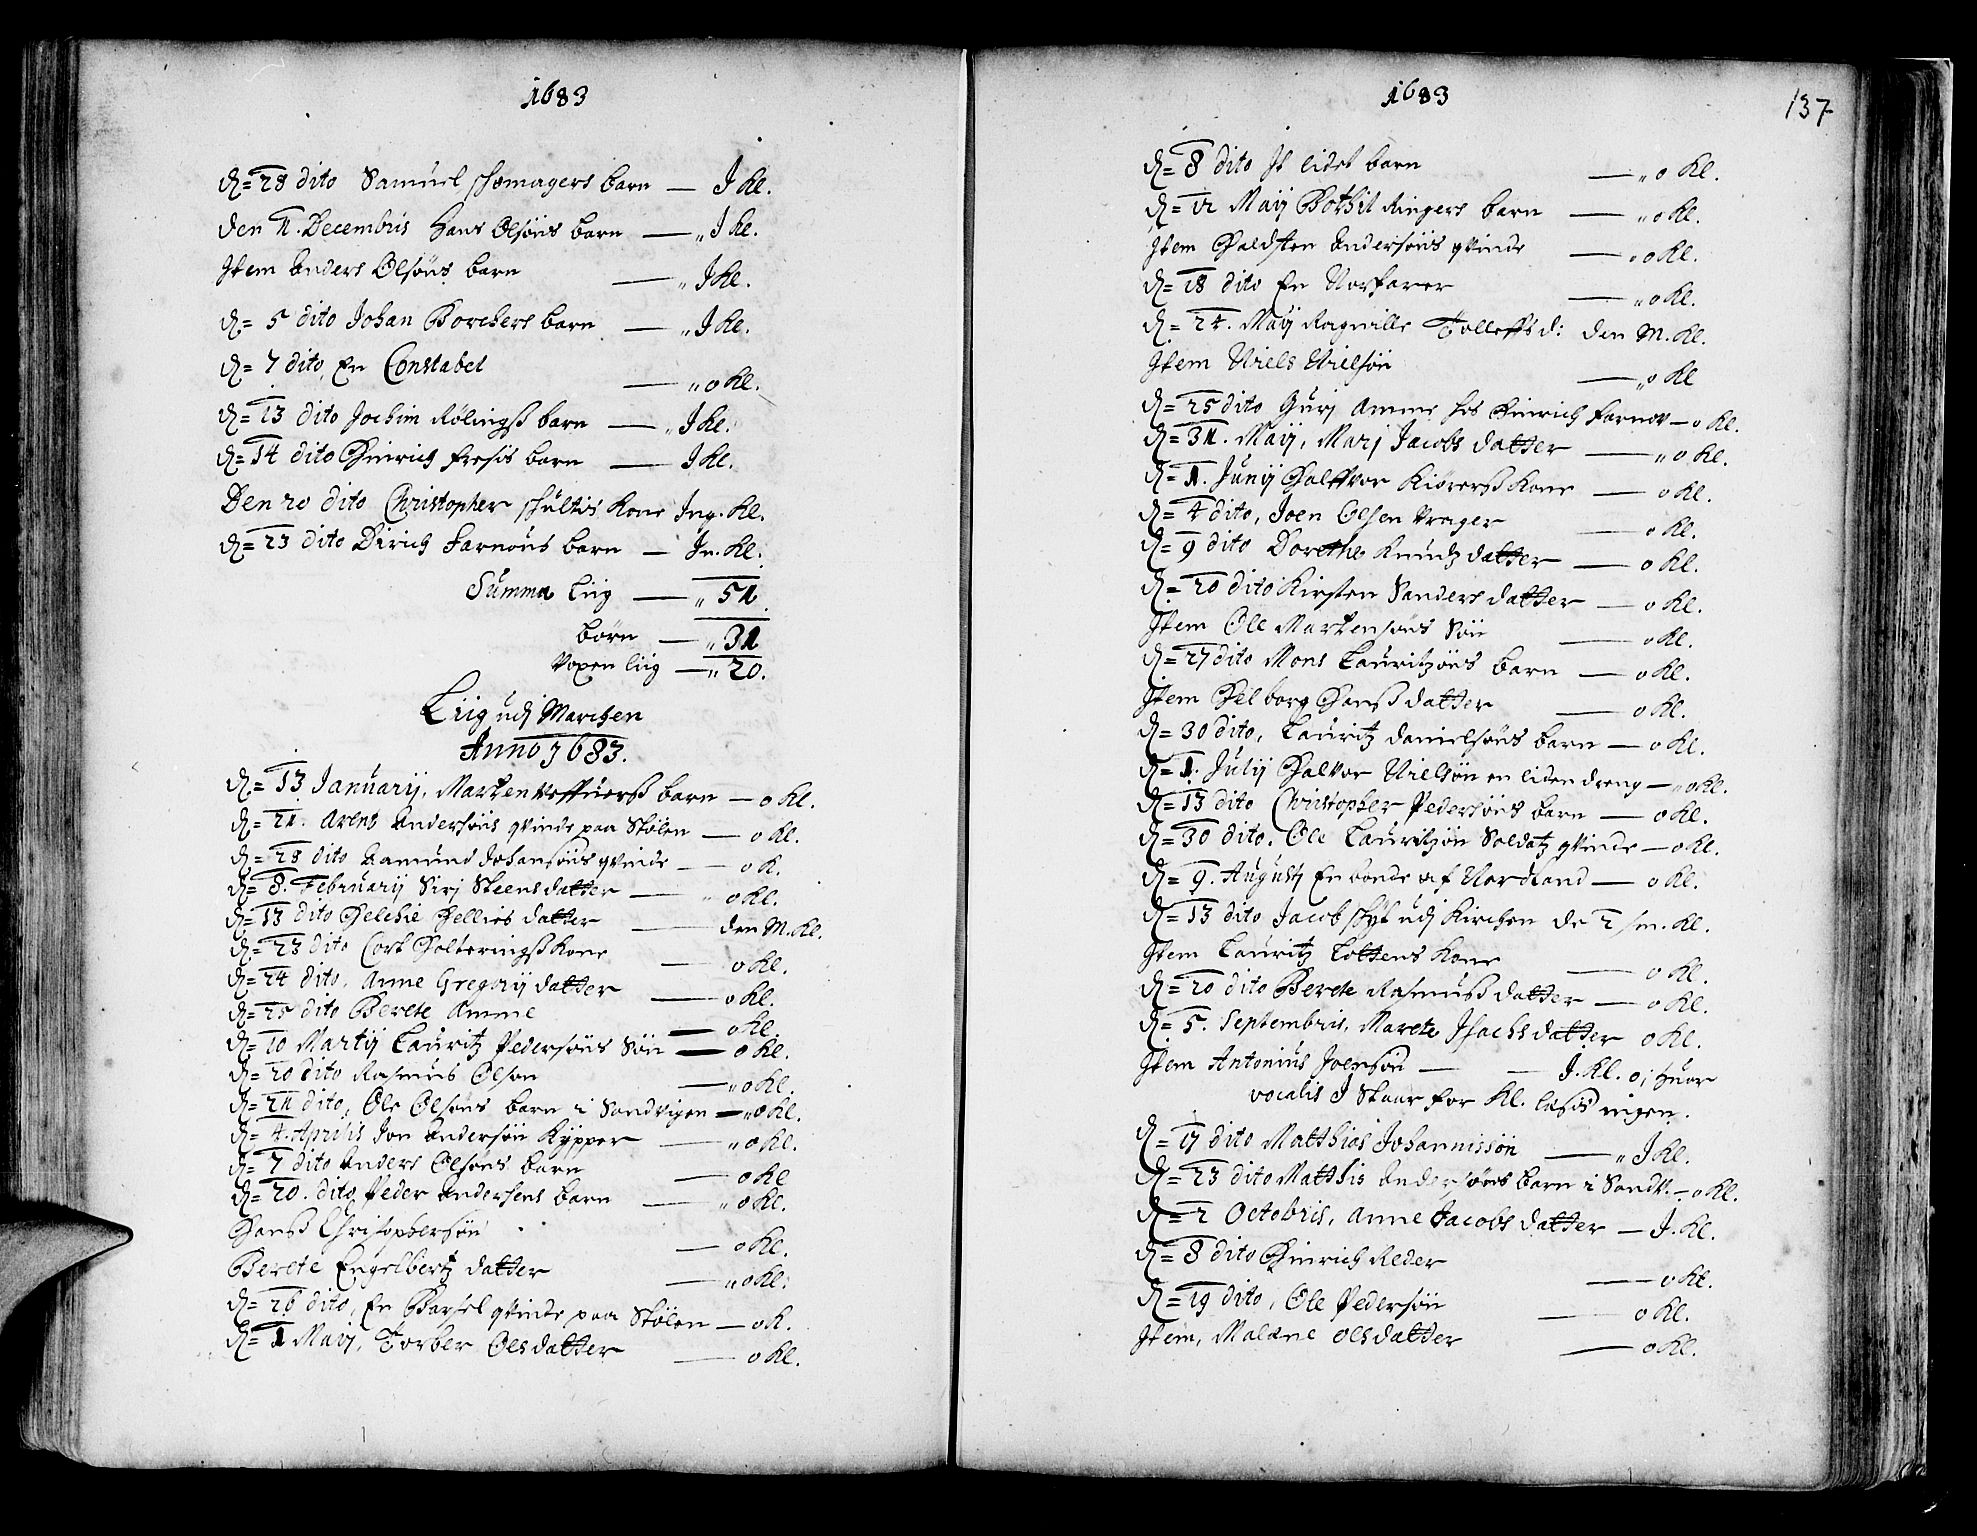 1683
d= 28 dito Samuel skomagers barn — J Kl.
den 11. Decembris Hans Olsöns barn — „ J Kl.
Item Anders Olsöns barn — „ J Kl.
d= 5 dito Johan Borchers barn — „ J Kl.
d= 7 dito, En Constabel — „ o Kl.
d= 13 dito Jochim Rölingß barn — „ J Kl.
d= 14 dito Hinrich Fresis barn — J Kl.
Den 20 dito Christopher shultis Kone Ing. Kl.
d= 23 dito Dirich Farnous barn — In. Kl.
Summa Liig — „ 51.
börn — „ 31
Voxen liig — „ 20.
Liig udj Marchen
Anno 1683.
d= 13 Januarij, Marten Veffuerß barn — o Kl.
d= 21. Arens Andersöns qvinde paa Stölen — o Kl.
d= 28 dito Aamund Johansöns qvinde — o K.
d= 8. Februarij Sirj Steensdatter — „ o Kl.
d= 13 dito Helchie Hellies datter — den M. Kl.
d= 23 dito Cort Holteringß Kone — o Kl.
d= 24 dito, Anne Gregorij datter — o Kl.
d= 25 dito Berete Amme — o Kl.
d= 10 Martij Lauritz Pedersöns Sön — o Kl.
d= 20 dito Rasmus Olson — „ o Kl.
d= 21 dito, Ole Olsöns barn i Sandvigen — „ o Kl.
d= 4. Aprilis Jon Andersön Kypper — „ o Kl.
d= 7 dito Anders Olsöns barn — o Kl
d= 20. dito Peder Andersens barn — „ o Kl.
Hanß Christophersön — o Kl.
Berete Engelbertz datter — „ o Kl.
d= 26 dito, En Barsel qvinde paa Stölen — o K.
d= 1 Maij, Torber Olsdatter — o Kl.
1683
137
d= 8 dito It lidet barn — „ o Kl.
d= 12 Maij Bothil Ringers barn — „ o Kl.
Item Haldsten Andersöns qvinde — „ o Kl.
d= 18 dito En Norfarer — „ o Kl.
d= 24. Maij Ragnille Tolleffsd: den M. Kl.
Item Niels Nielsön — „ o Kl
d= 25 dito Gurj Amme hos Hinrich Farnov — o Kl.
d= 31. Maij, Marj Jacobs datter — „ o Kl.
d= 1. Junij Halffvor Kiörerß Kone — o Kl.
d= 4 dito, Joen Olsen Vrager — o Kl.
d= 9 dito Dorethe Knudtz datter — o Kl.
d= 20 dito Kirsten Sanders datter — o Kl.
Item Ole Martensöns Sön — o Kl.
d= 27 dito Mons Lauritzöns barn — o Kl.
Item Helborg Hanß datter — o Kl.
d= 30 dito, Lauritz danielsöns barn — o Kl.
d= 1. Julij Halvor Nielsön en liden dreng — „ o Kl.
d= 13 dito Christopher Pedersöns barn — o Kl.
d= 30 dito. Ole Lauritzön Soldatz qvinde — o Kl.
d= 9. Augustj En bonde af Nordland — o Kl.
d= 13 dito Jacob skyt udj Kirchen de 2 sm. Kl.
Item Lauritz Lottens Kone — o Kl.
d= 20 dito Berete Rasmusß datter — o Kl.
d= 5. Septembris, Marete Isachs datter o Kl.
Item Antonius Joensön — — J. Kl. o; huor
vocalis J Staar for Kl. læsis ingen.
d= 17 dito Matthias Johannissön — „ J Kl.
d= 23 dito Matthis Andersöns barn i Sandv. — o Kl.
d= 2 Octobris, Anne Jacobs datter — J. Kl.
d= 8 dito Hinrich Reder — o Kl.
d= 19 dito, Ole Pedersön — o Kl.
Item, Malene Olsdatter — o Kl.